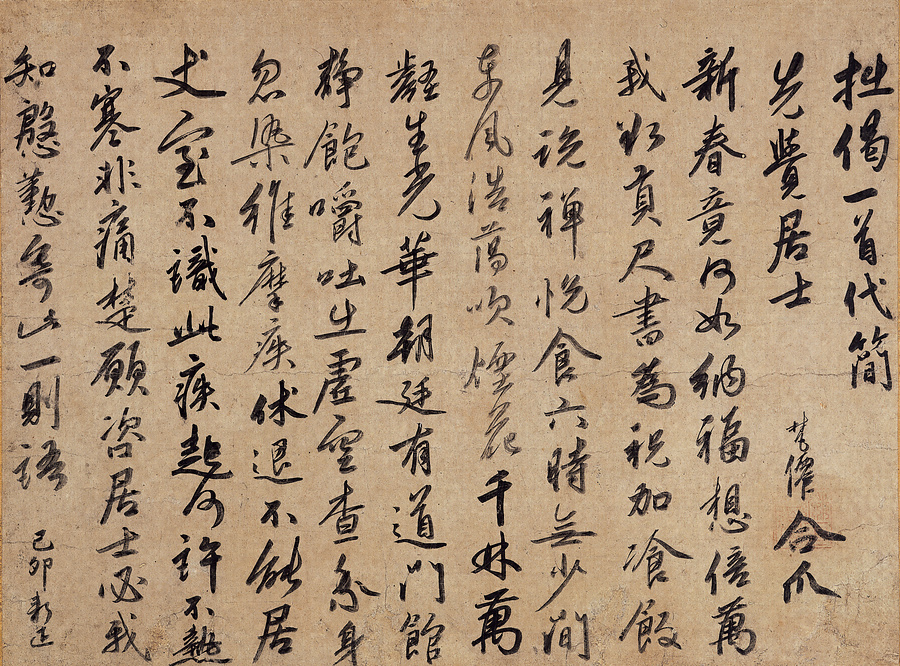 拙偈一首代簡
先覺居士 梵僊合爪
新春意何如納福想倍萬
我 尺書為祝加飡飯
見說禪悅食六時無少間
東風浩蕩吹煙花千林萬
壑生光華朝廷有道門館
靜飽嚼吐生虛空查余身
忽染維摩疾休退不能居
丈室不識此疾起何許不熱
不寒非痛楚願咨居士必我
知慇懃寄此一則語 己卯新正